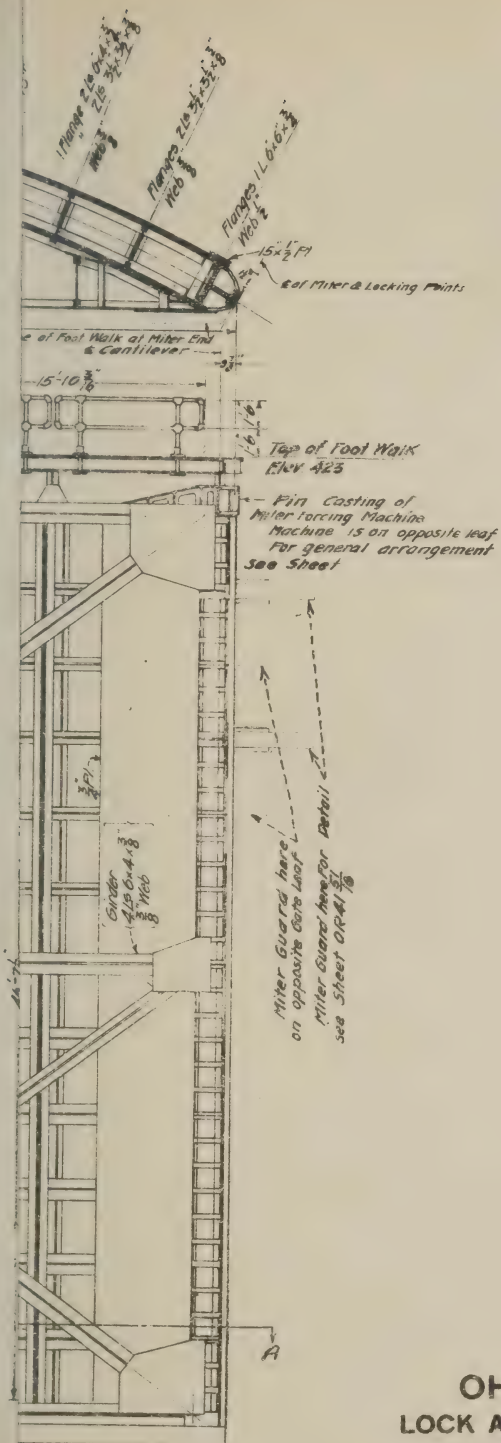 1 Flange 2 Ls 6"x4"x3/8"
" 2 Ls 3 1/2"x3 1/2"x
Web 3/8"
Flanges 2 Ls 3 1/2"x3 1/2"x3/8"
Web 3/8"
Flanges 1 L 6"x6"x3/4"
Web 1/2"
15"x1/2" Pl
℄ of Miter & Locking Points
e of Foot Walk at Miter End
& Cantilever
15'-10 3/16"
1'-6"
1'-6"
Top of Foot Walk
Elev 423
Pin Casting of
Miter forcing Machine
Machine is on opposite leaf
For general arrangement
See Sheet
3/4" Pl
Girder
4 Ls 6x4x3/8"
3/8" Web
Miter Guard here
on opposite Gate Leaf
Miter Guard here. For Detail
see Sheet OR41 51/18
A
OH
LOCK A